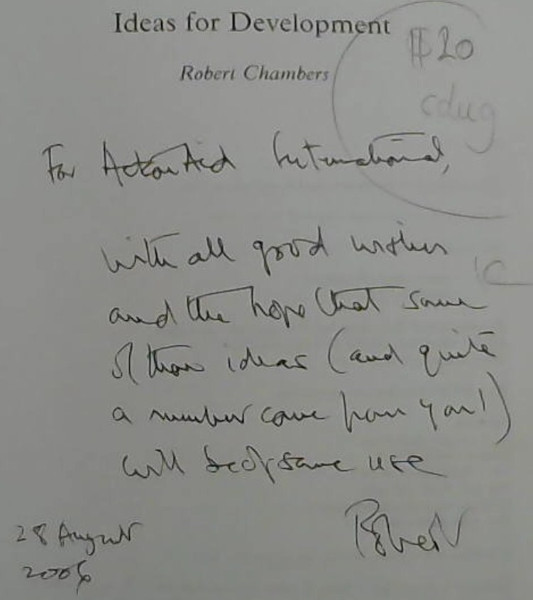 Ideas for Development
$20
Robert Chambers
For ActionAid International,
with all good wishes
and the hope that some
of these ideas (and quite
a number come from you!)
will be of some use
Robert
28 August
2006